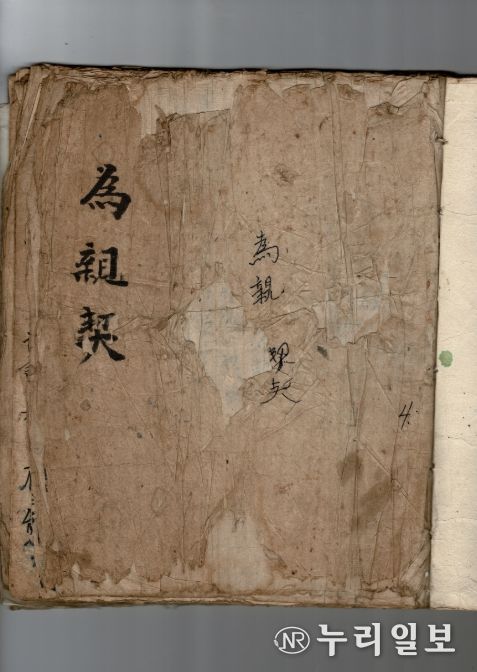 為親契
為親契
4.
NR 누리일보